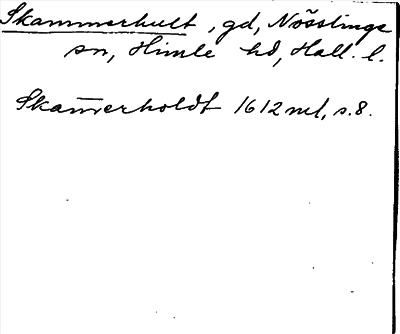 Skammerhult, gd, Nösslinge
sn, Himle hd, Hall. l.
Skam̅erholdt 1612 ml, s. 8.